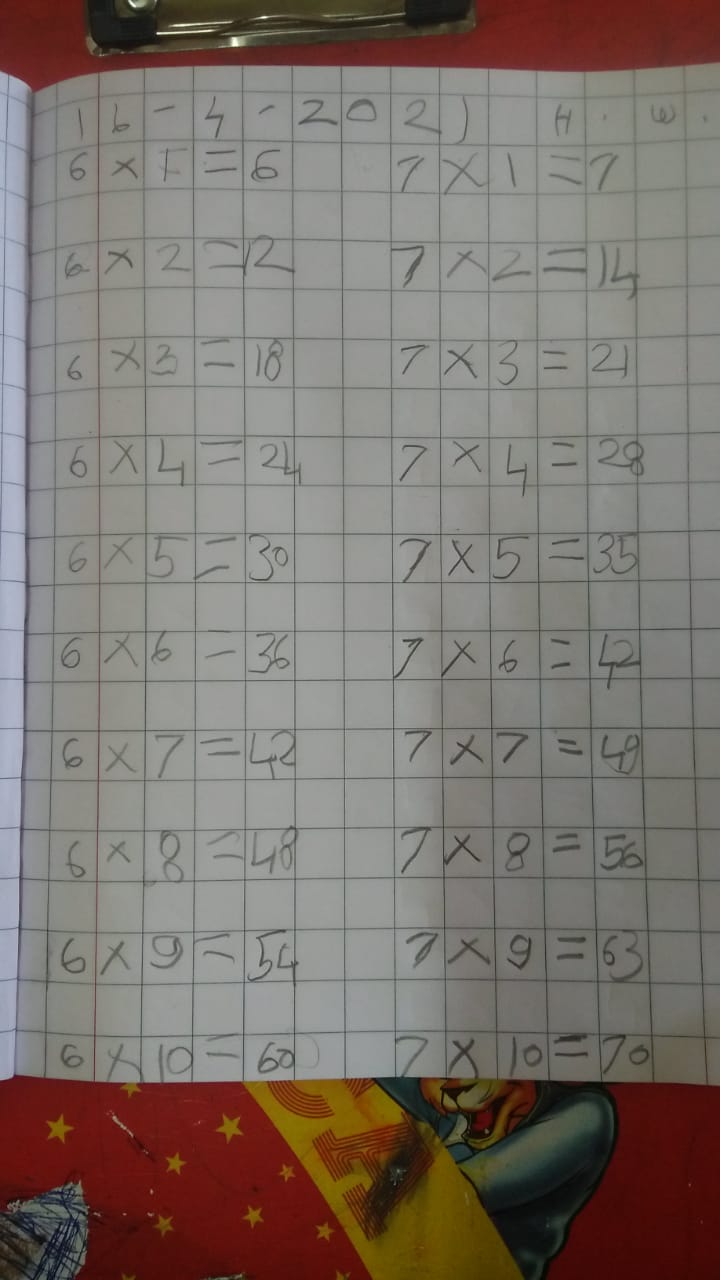 16-4-2021 H.W.
6 × 1 = 6 7 × 1 = 7
6 × 2 = 12 7 × 2 = 14
6 × 3 = 18 7 × 3 = 21
6 × 4 = 24 7 × 4 = 28
6 × 5 = 30 7 × 5 = 35
6 × 6 = 36 7 × 6 = 42
6 × 7 = 42 7 × 7 = 49
6 × 8 = 48 7 × 8 = 56
6 × 9 = 54 7 × 9 = 63
6 × 10 = 60 7 × 10 = 70